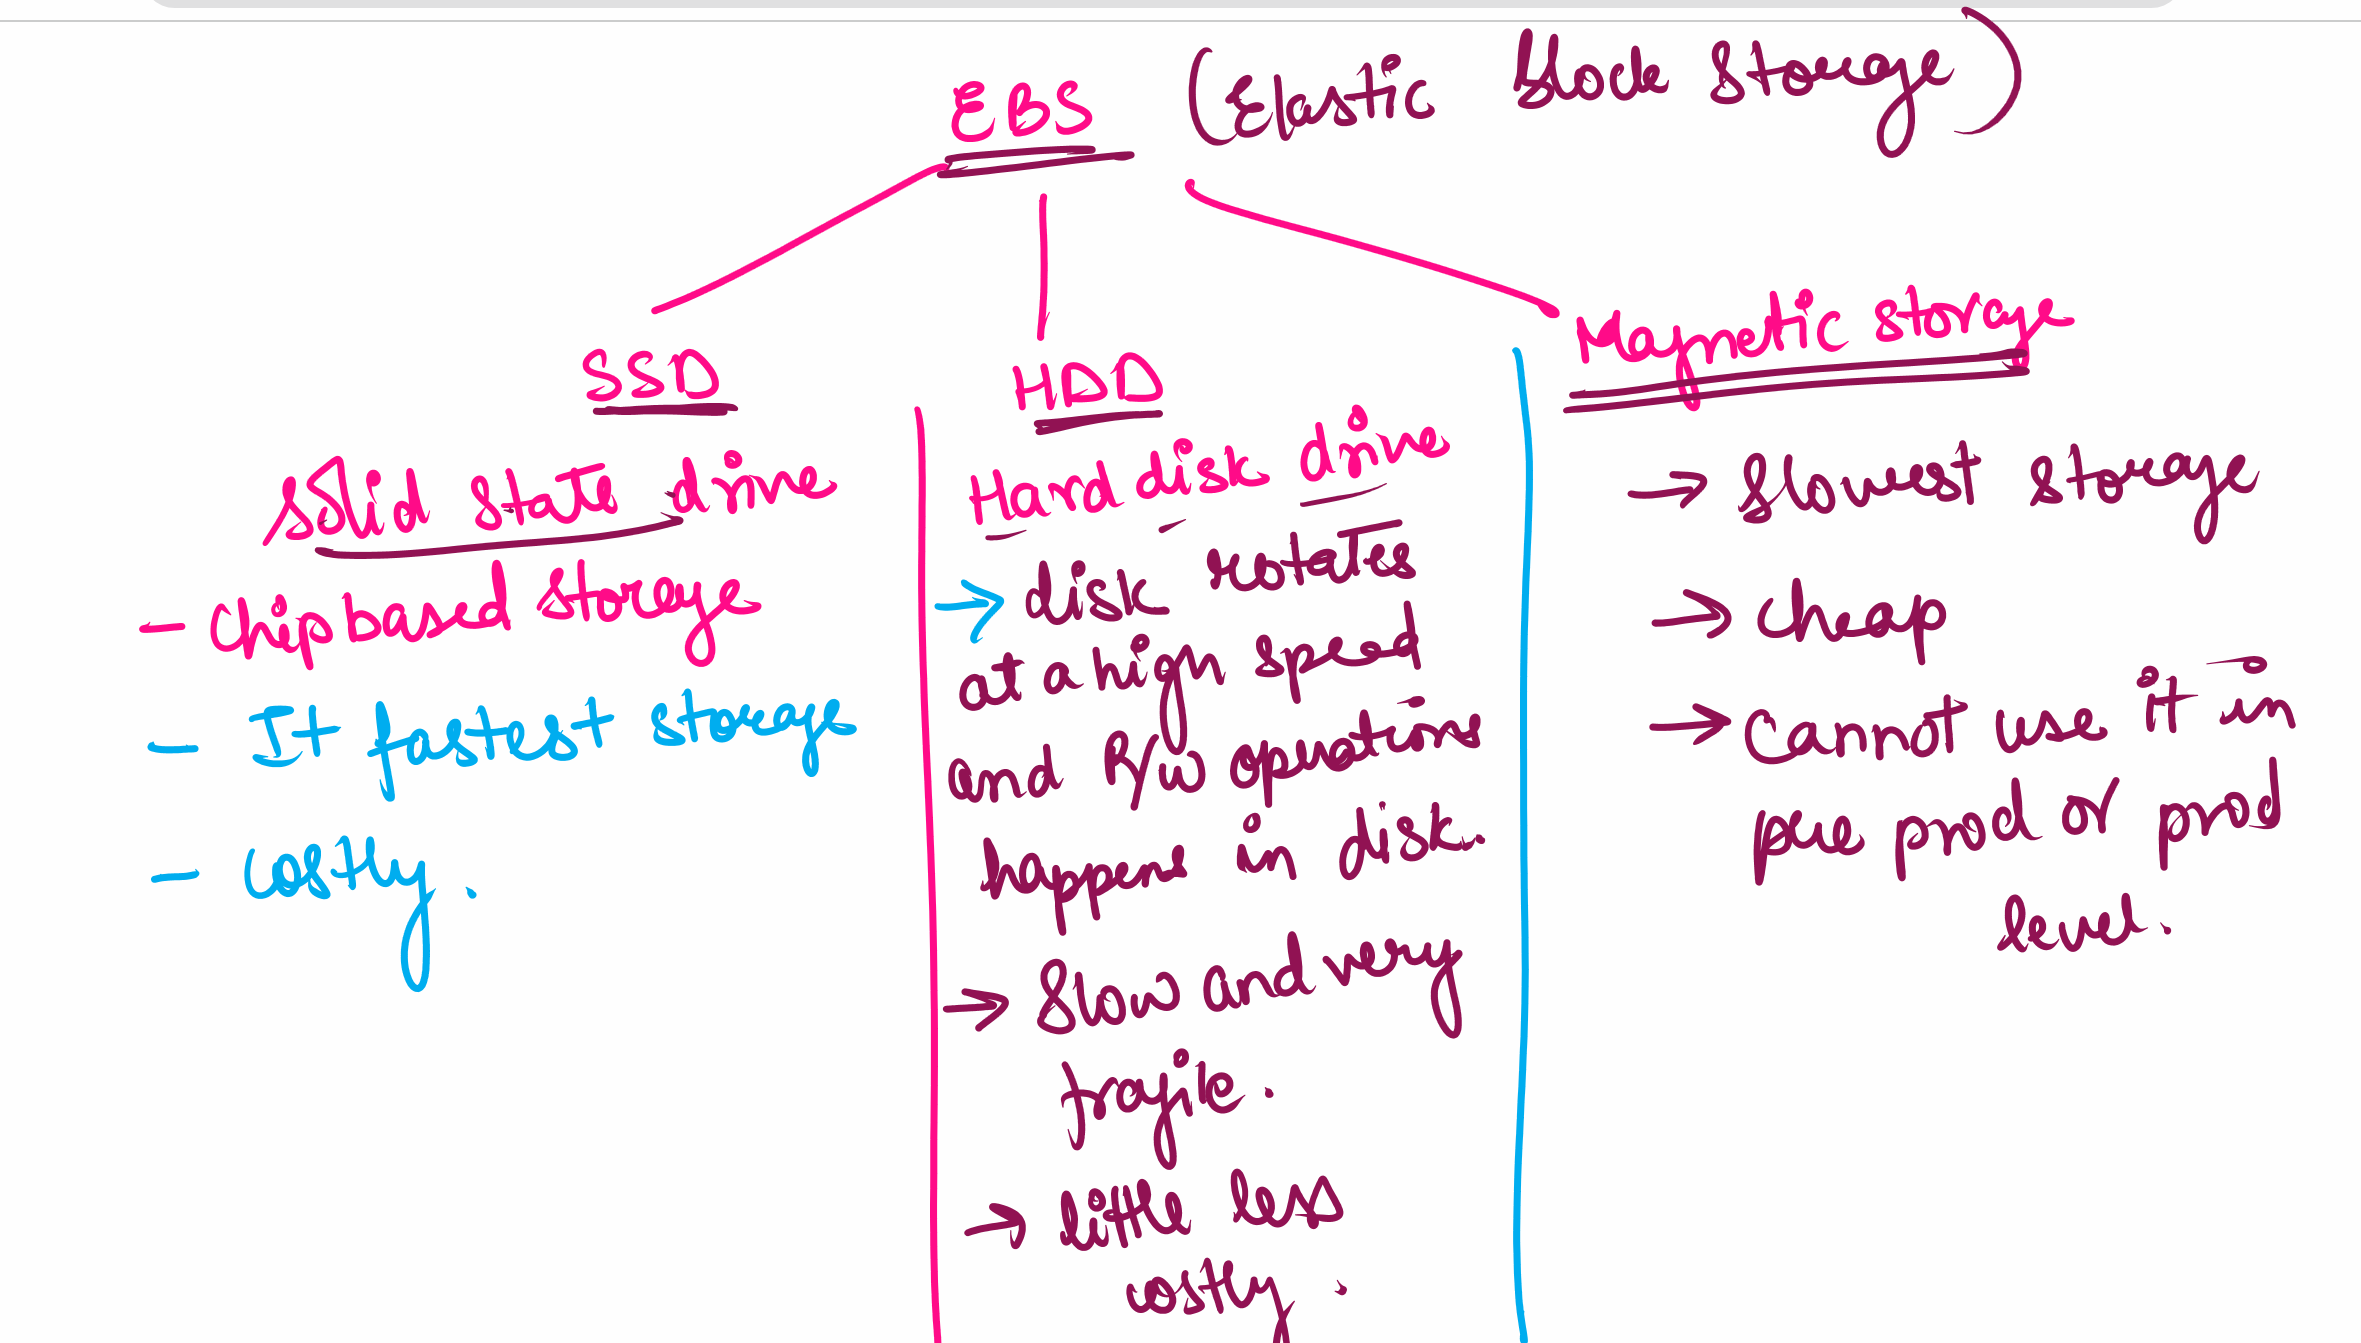 EBS (Elastic Block Storage)
SSD
Solid state drive
- chip based storage
- It fastest storage
- Costly.
HDD
Hard disk drive
→ disk rotates
at a high speed
and R/W operations
happens in disk.
→ Slow and very
fragile.
→ little less
costly.
Magnetic storage
→ Slowest storage
→ Cheap
→ Cannot use it in
pre prod or prod
level.